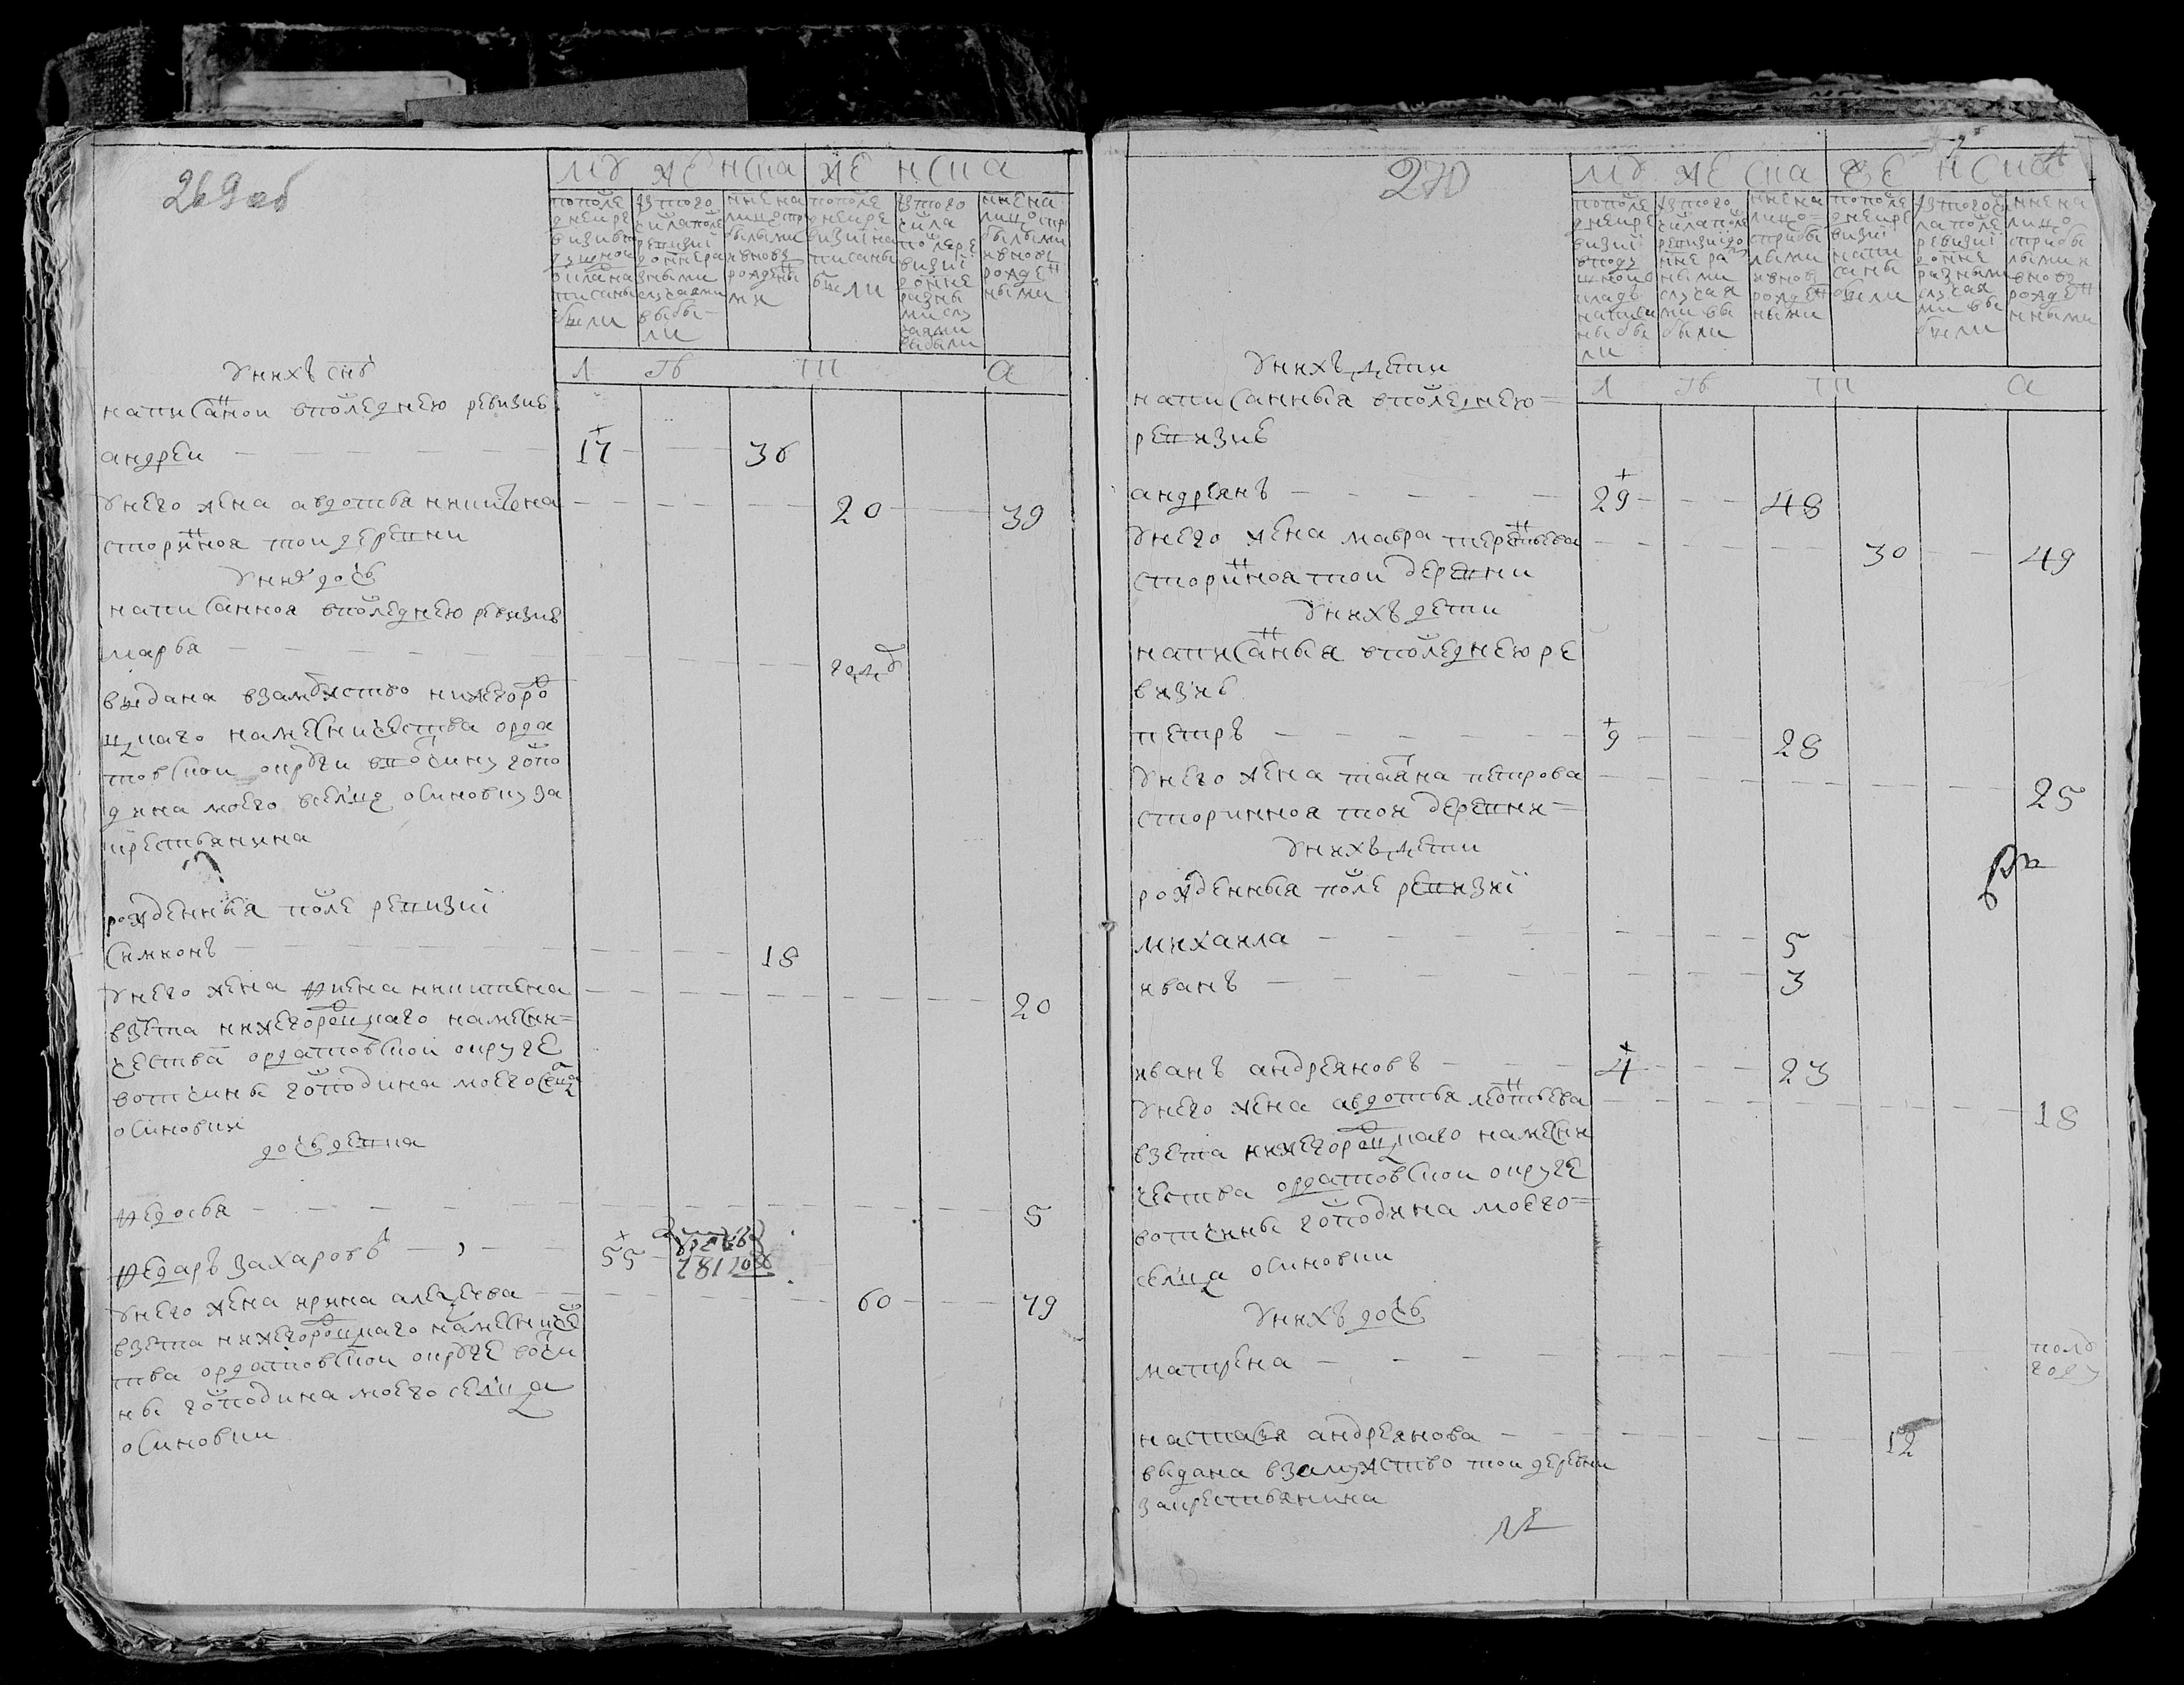 269 об
му же нска же нска
пополе
днеире
визив
душной
окладна
писаны
были
ѵстого
числапосле
ревизиї
доннера
зными
случаями
выбы-
ли
нынена
лицопри
былыми
ивновь
рожденны
ми
пополе
днеире
визиїна
писаны
были
ѵстого
числа
послере
визиї
донне
разны
мислу
чаями
выбыли
нынена
лицопри
былыми
ивновь
рожден
ными
л ѣ т а
уних снъ
написаной вполеднею ревизие
андреи 17 36
унего жена авдотья никитена 20 39
сторинноя тои деревни
уних дочь
написанноя вполеднею ревизие
марья году
выдана взамужство нижегоро
цкаго наместничества арда
товскои округи вотчину гопо
дина моего вселце осиновку за
крестьянина
рожденныя после ревизиї
симионъ 18
унего жена фекла никитена 20
взета нижегороцкаго намесни=
чества ардатовскои округе
вотчины гоподина моего селца
осиновки
дочь девка
федосья 5
федаръ захаровъ 55 умре въ 781 году
унего жена ирина алексеева 60 79
взета нижегороцкаго намесниче
тва ардатовскои округе вотчи
ны гоподина моего селца
осиновки
270
му же ска же нска
пополе
днеире
визиї
вподу
шномо
кладе
написа
ны бы
ли
ѵстого
числапосле
ревизиїдо
нне раз
ными
случая
ми вы
были
нынена
лицо=
прибы
лыми
ивновь
рожден
ными
пополе
днеире
визиї
напи
саны
были
ѵстогочис
лаполе
ревизиї
донне
разными
случая
ми вы
были
нынена
лицо
прибы
лыми
вновь
рожден
нными
л ѣ т а
унихъ дети
написанныя вполеднею=
ревизие
андреянъ 29 48
унего жена мавра терентьева 30 49
сторинноя тои деревни
унихъ дети
написаныя вполеднею ре
визие
петръ 9 28
унего жена татяна петрова 25
сторинноя тоя деревни=
унихъ дети
рожденныя поле ревизиї
михаила 5
иванъ 3
иванъ андреяновъ 4 23
унего жена авдотья леонтьева 18
взета нижегороцкаго намесни
чества ардатовскои округе
вотчины гоподина моего=
селца осиновки
унихъ дочь
матрена полу
году
настася андреянова 12
выдана взамужство тои деревни
закрестьянина